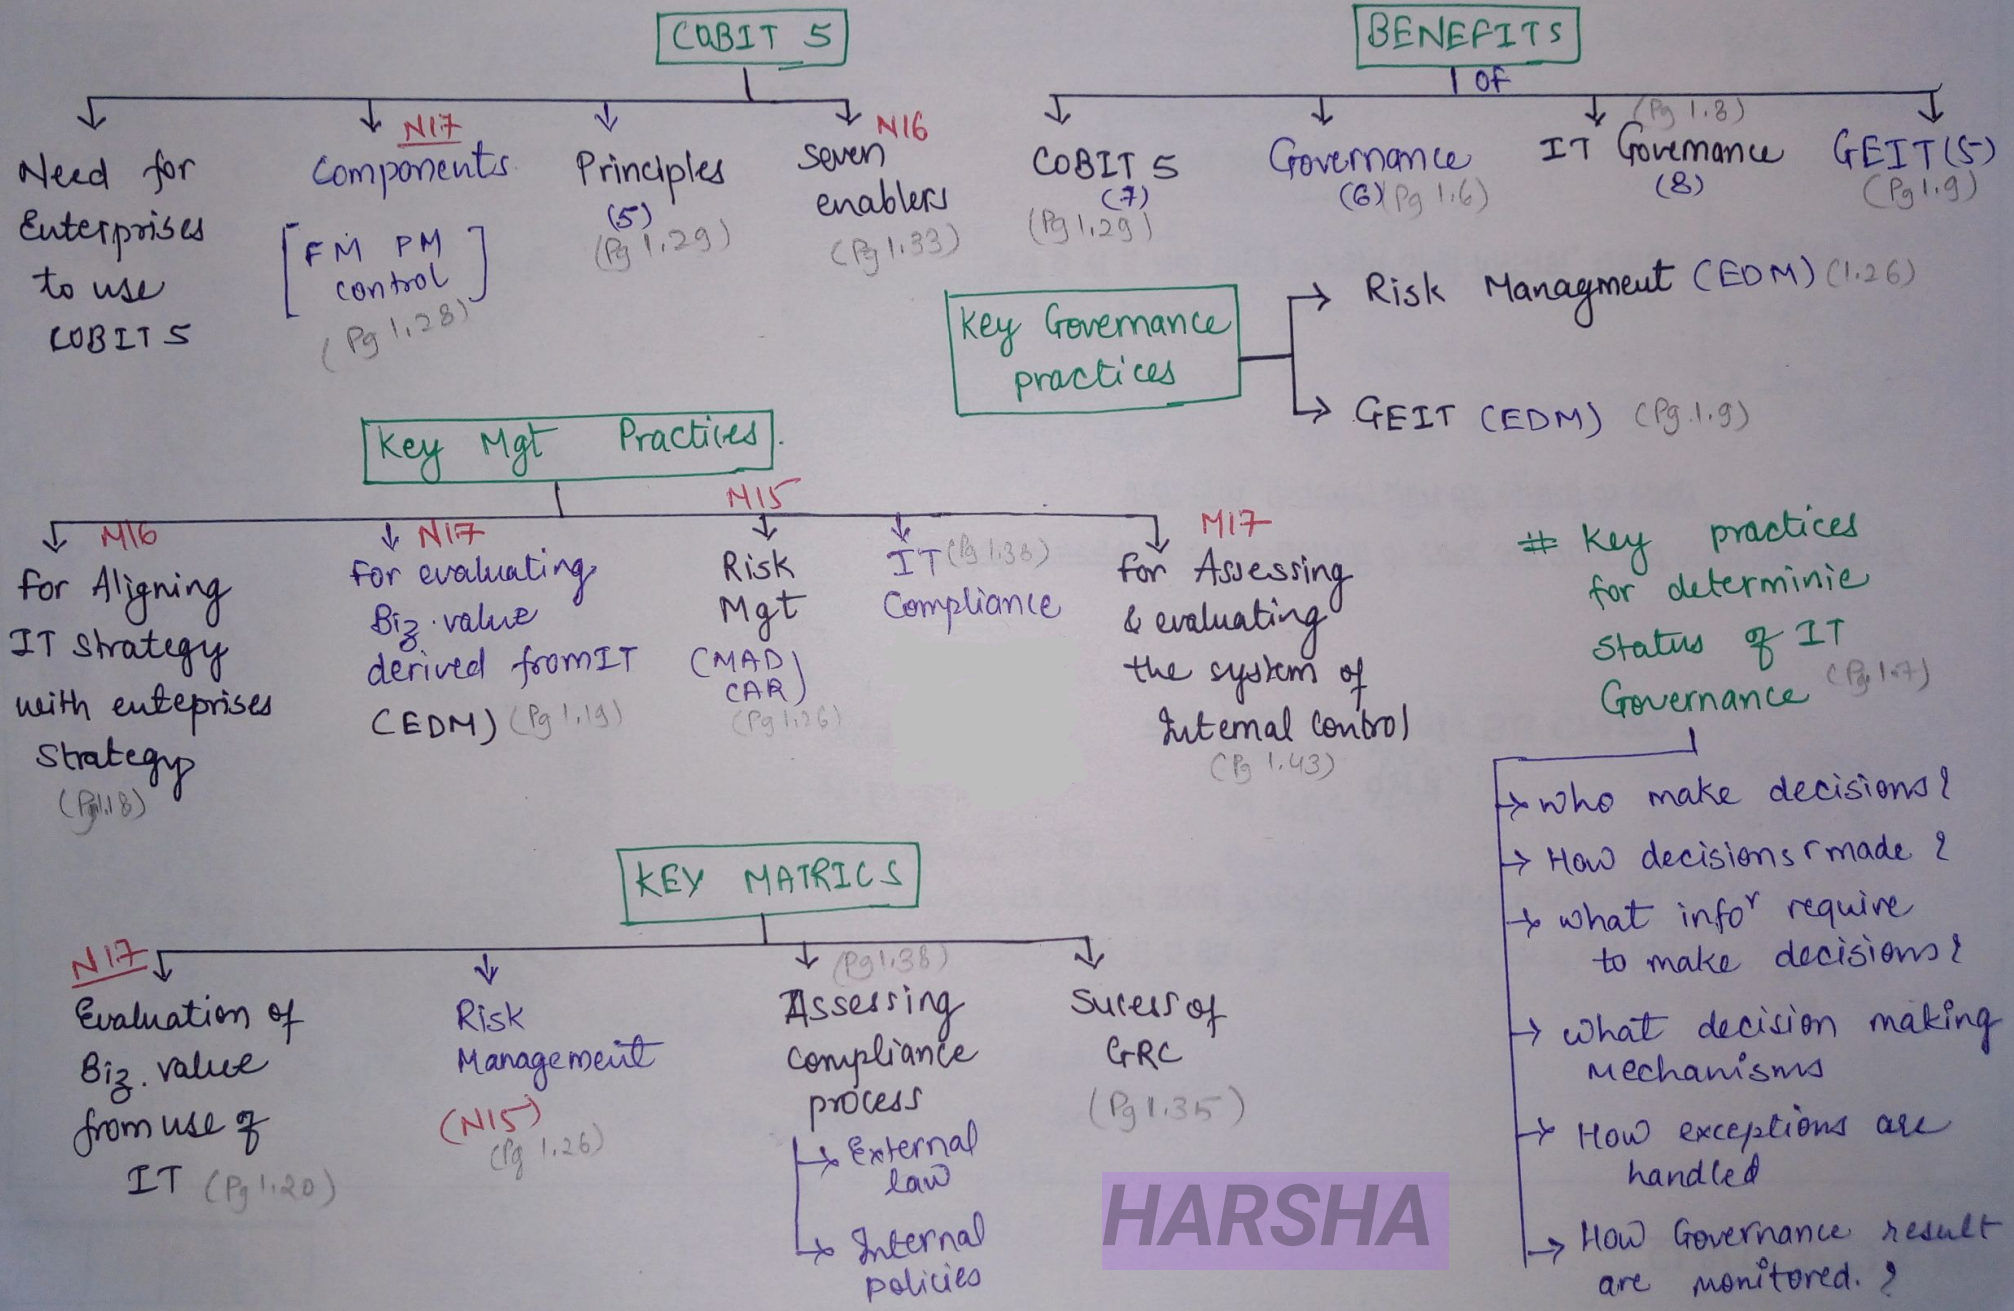 COBIT 5
Need for
Enterprises
to use
COBIT 5
N17
Components
[FM PM
control]
(Pg 1.28)
Principles
(5)
(Pg 1.29)
N16
Seven
enablers
(Pg 1.33)
BENEFITS
OF
COBIT 5
(7)
(Pg 1.29)
Governance
(6) (Pg 1.6)
(Pg 1.8)
IT Governance
(8)
GEIT (5)
(Pg 1.9)
Key Governance
practices
Risk Managment (EDM) (1.26)
GEIT (EDM) (Pg 1.9)
Key Mgt Practices
M16
for Aligning
IT Strategy
with enteprises
Strategy
(Pg 1.18)
N17
For evaluating
Biz. value
derived from IT
(EDM) (Pg 1.19)
N15
Risk
Mgt
(MAD
CAR)
(Pg 1.26)
IT (Pg 1.38)
Compliance
M17
for Assessing
& evaluating
the system of
Internal Control
(Pg 1.43)
# Key practices
for determinie
Status of IT
Governance (Pg 1.7)
who make decisions?
How decisions r made?
what infor require
to make decisions?
what decision making
mechanisms
How exceptions are
handled
How Governance result
are monitored.?
KEY MATRICS
N17
Evaluation of
Biz. value
from use of
IT (Pg 1.20)
Risk
Management
(N15)
(Pg 1.26)
(Pg 1.38)
Assessing
compliance
process
External
law
Internal
policies
Sucess of
GRC
(Pg 1.35)
HARSHA